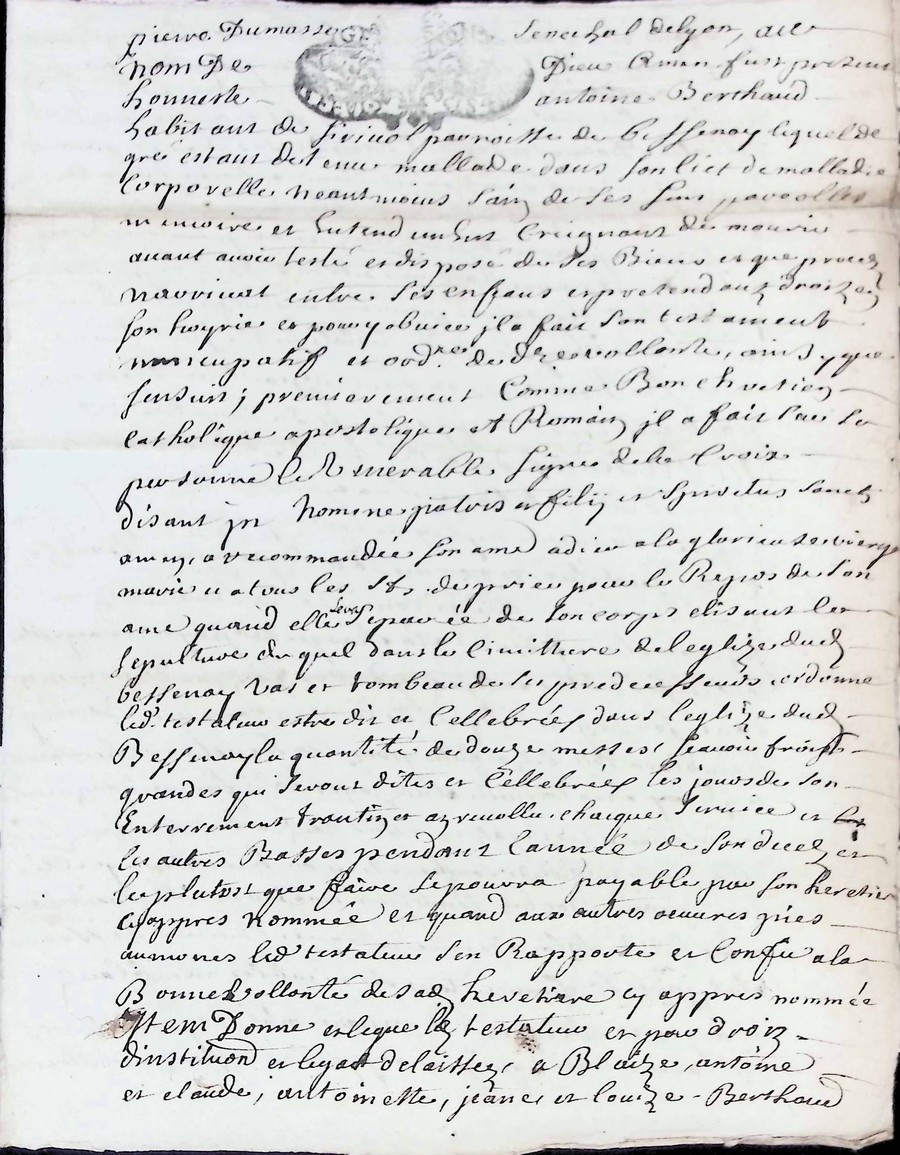 pierre Dumas senechal de lyon, au
nom De Dieu Amen fust present
honneste antoine Berthaud
habitant de parroisse de bessenay lequel de
gré estant detenu mallade dans son lict de malladie
Corporelle neantmoins sain de ses sens parolles
memoire et Entendement Creignant de mourir
auant auoir testé et disposé de ses Biens et que procez
narriuat entre ses enfans et pretendantz droitz en
son hoyrie et pour y obuier jl a fait son testament
nuncupatif et ordre. de dre vollonte, ainsy que
sensuit; premierement Comme Bon chretien
catholique apostolique et Romain jl a fait sur sa
personne le Venerable signe de la Croix
disant jn Nomine patris et filij et spiritus sancti
amen, a recommandée son ame a dieu a la glorieuse vierge
marie et a tous les sts de prier pour le Repos de son
ame quand elle sera separée de son corps elisant la
sepulture dicquel dans le cimittiere de leglize dud
bessenay Vas et tombeau de ses predecesseurs ordonne
led. testateur estre dit et Cellebrées dans leglize dud
Bessenay la quantité de douze messes, scauoir trois
grandes qui seront dites et Cellebrées les jours de son
Enterrement trantin et an reuollu, chaque seruice et
les autres Basses pendant lannée de son decez, et
le plutost que faire se pourra payable par son heretiere
cy appres nommée et quand aux autres oeuures pies
aumones led testateur sen Rapporte et Confie a la
Bonne Vollonté de sad heretiere cy appres nommée
Item Donne et legue led testateur et par droit
dinstituond et legat delaisse, a Blaize, antoine
et claude, antoinette, jeane, et louize Berthaud